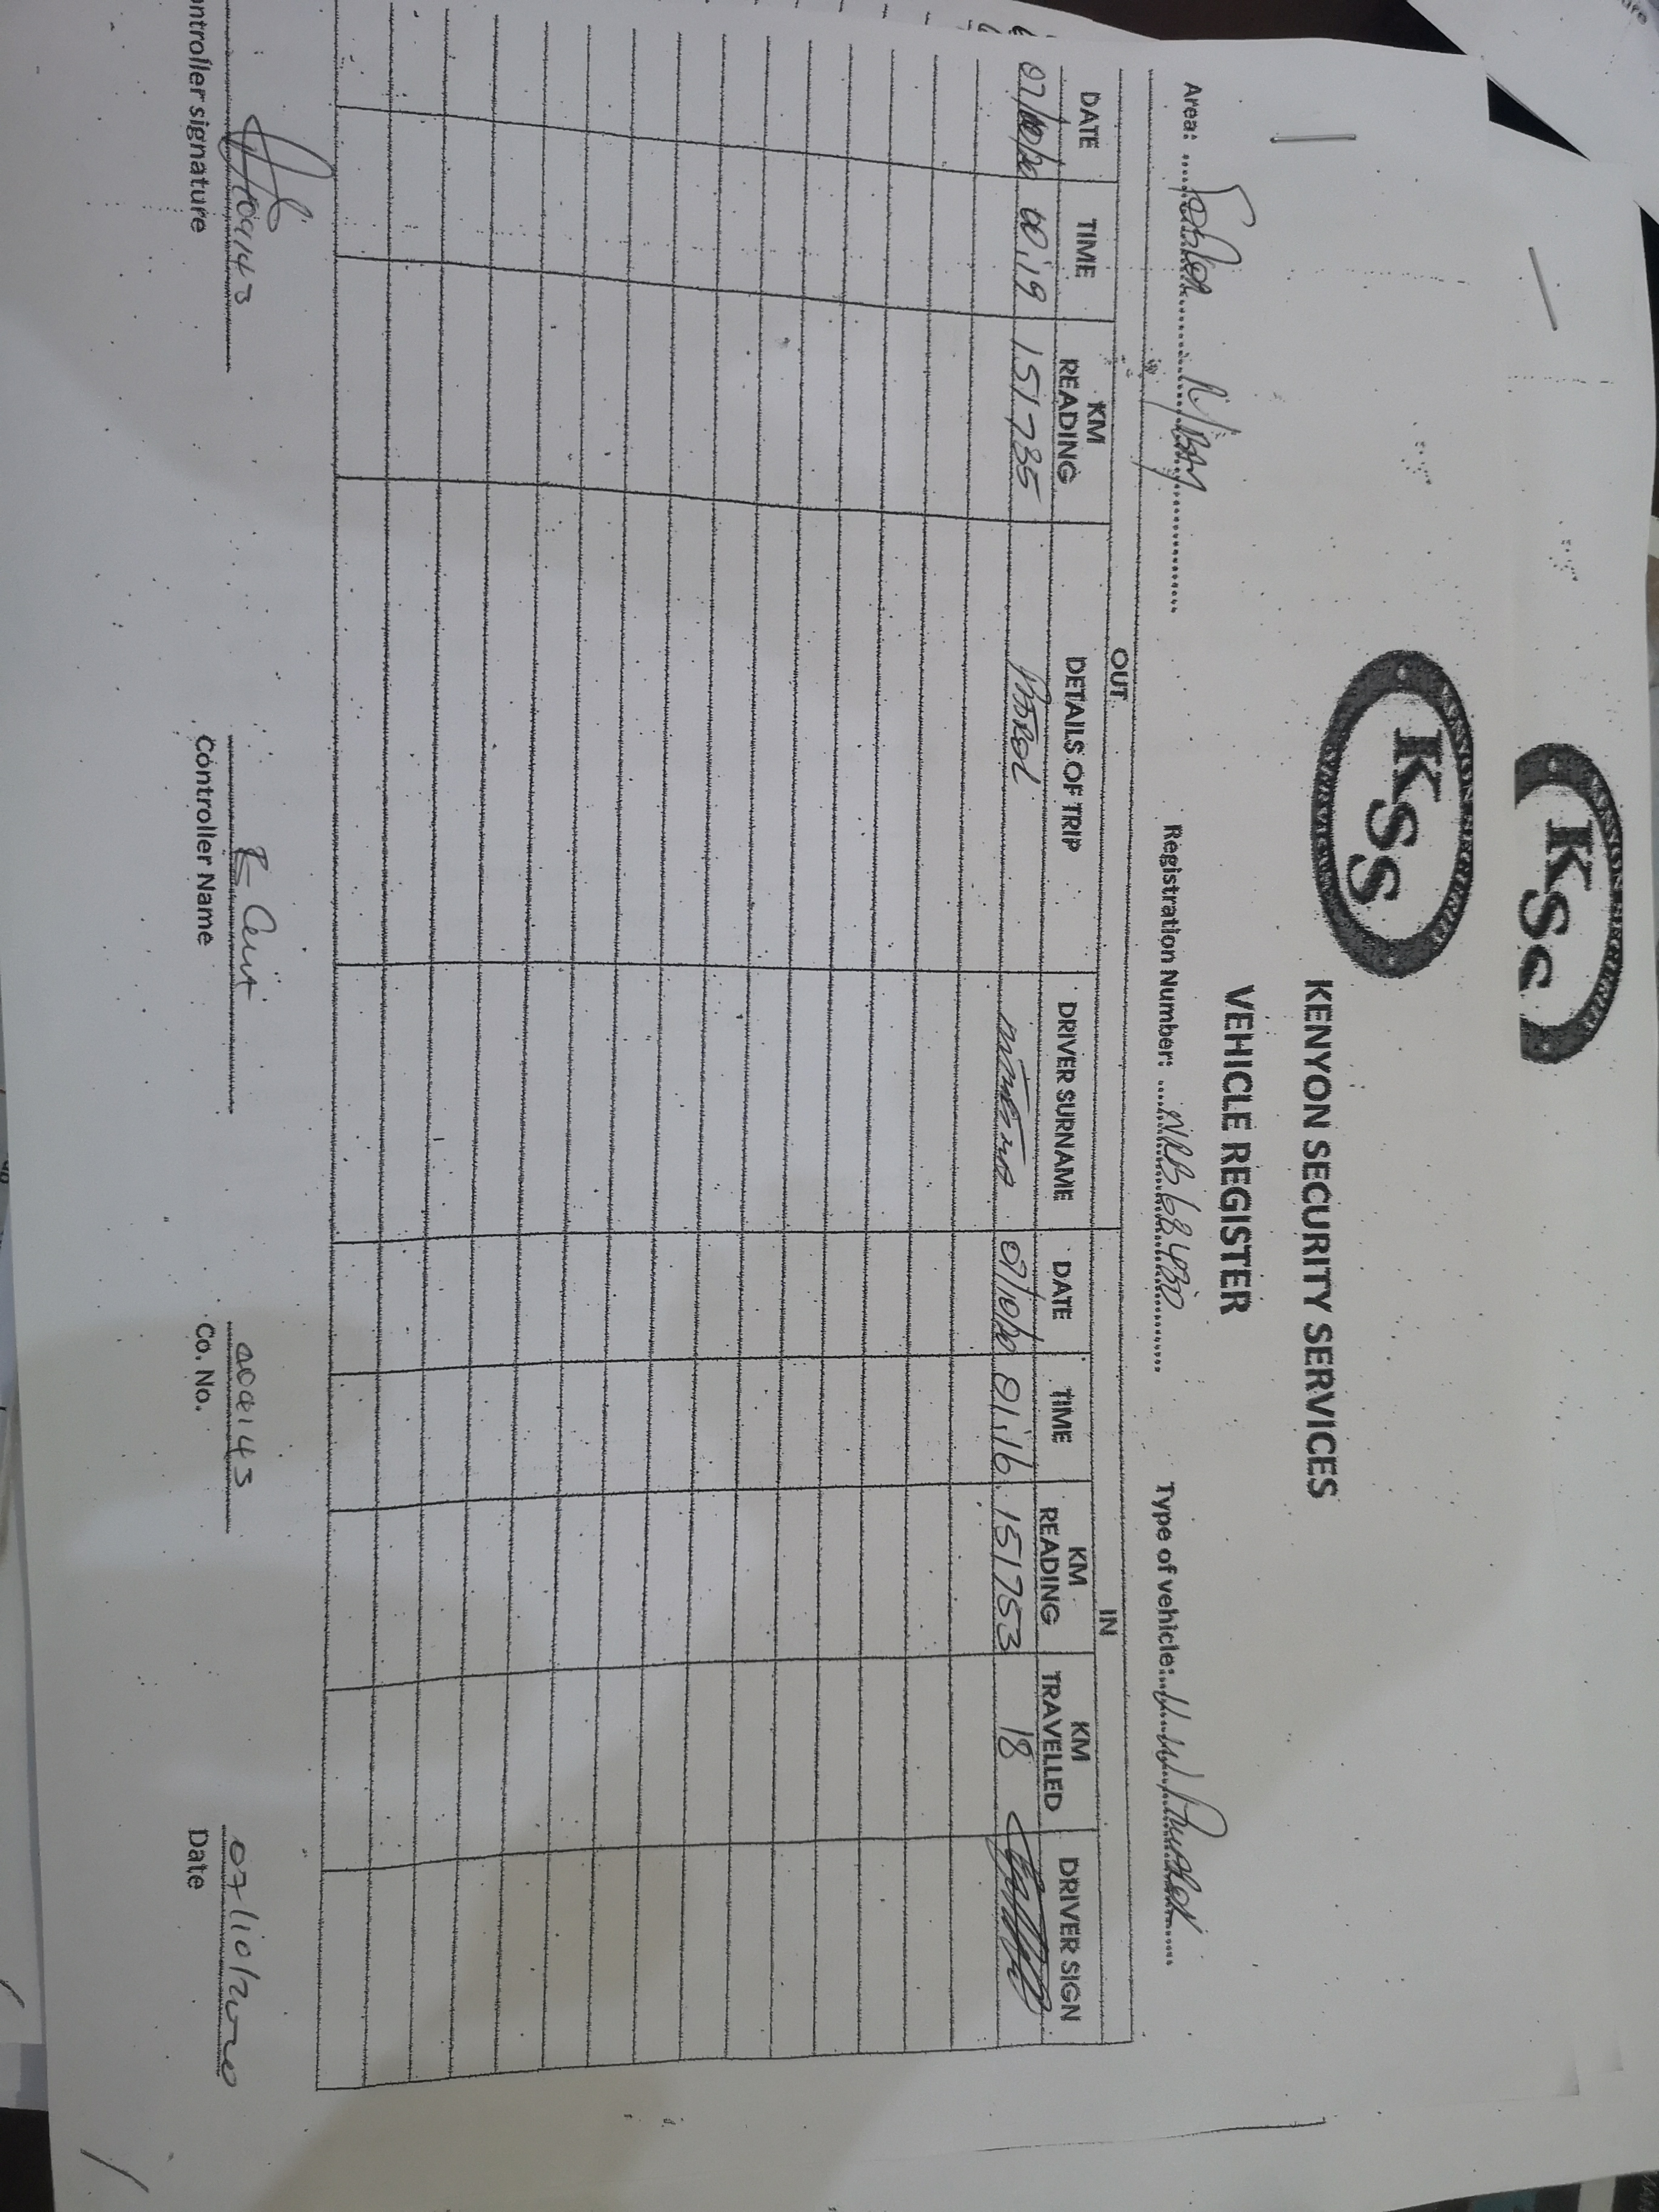 KENYON SECURITY
KSS
KENYON SECURITY
KSS
SERVICES
KENYON SECURITY SERVICES
VEHICLE REGISTER
Area: R/BAY Registration Number: NRB68430 Type of vehicle: V.W Amarok
OUT IN
DATE TIME KM READING DETAILS OF TRIP DRIVER SURNAME DATE TIME KM READING KM TRAVELLED DRIVER SIGN
07/10/20 00:19 151735 PATROL 07/10/20 01:16 151753 18
109143 004143 07/10/2020
ontroller signature Controller Name Co. No. Date